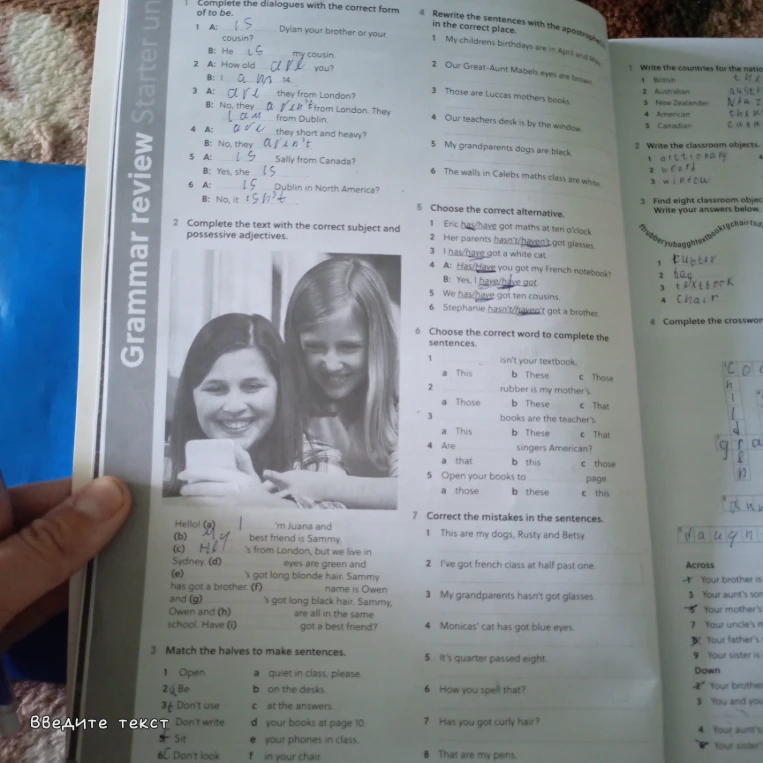 Grammar review Starter un
1 Complete the dialogues with the correct form
of to be.
1 A: is Dylan your brother or your
cousin?
B: He is my cousin.
2 A: How old are you?
B: I am 14.
3 A: are they from London?
B: No, they aren't from London. They
from Dublin.
4 A: are they short and heavy?
B: No, they aren't
5 A: is Sally from Canada?
B: Yes, she is
6 A: is Dublin in North America?
B: No, it isn't
2 Complete the text with the correct subject and
possessive adjectives.
Hello! (a) I 'm Juana and
(b) My best friend is Sammy.
(c) 's from London, but we live in
Sydney. (d) eyes are green and
(e) 's got long blonde hair. Sammy
has got a brother. (f) name is Owen
and (g) 's got long black hair. Sammy,
Owen and (h) are all in the same
school. Have (i) got a best friend?
3 Match the halves to make sentences.
1 Open a quiet in class, please.
2 Be b on the desks.
3 Don't use c at the answers.
Don't write d your books at page 10.
Sit e your phones in class.
6 Don't look f in your chair.
4 Rewrite the sentences with the apostrophe
in the correct place.
1 My childrens birthdays are in April and May.
2 Our Great-Aunt Mabels eyes are brown.
3 Those are Luccas mothers books.
4 Our teachers desk is by the window.
5 My grandparents dogs are black.
6 The walls in Calebs maths class are white.
5 Choose the correct alternative.
1 Eric has/have got maths at ten o'clock.
2 Her parents hasn't/haven't got glasses.
3 I has/have got a white cat.
4 A: Has/Have you got my French notebook?
B: Yes, I have/have got.
5 We has/have got ten cousins.
6 Stephanie hasn't/haven't got a brother.
6 Choose the correct word to complete the
sentences.
1 isn't your textbook.
a This b These c Those
2 rubber is my mother's.
a Those b These c That
3 books are the teacher's.
a This b These c That
4 Are singers American?
a that b this c those
5 Open your books to page.
a those b these c this
7 Correct the mistakes in the sentences.
1 This are my dogs, Rusty and Betsy.
2 I've got french class at half past one.
3 My grandparents hasn't got glasses.
4 Monicas' cat has got blue eyes.
5 It's quarter passed eight.
6 How you spell that?
7 Has you got curly hair?
8 That are my pens.
1 Write the countries for the natio
1 British
2 Australian
3 New Zealander
4 American
5 Canadian
2 Write the classroom objects.
1
2
3 window
3 Find eight classroom objec
Write your answers below.
1 rubber
2 bag
3 textbook
4 chair
4 Complete the crosswor
Across
Your brother is
3 Your aunt's son
Your mother's
7 Your uncle's
Your father's
9 Your sister is
Down
Your brothe
3 You and you
4 Your aunt's
Your sister'
Введите текст